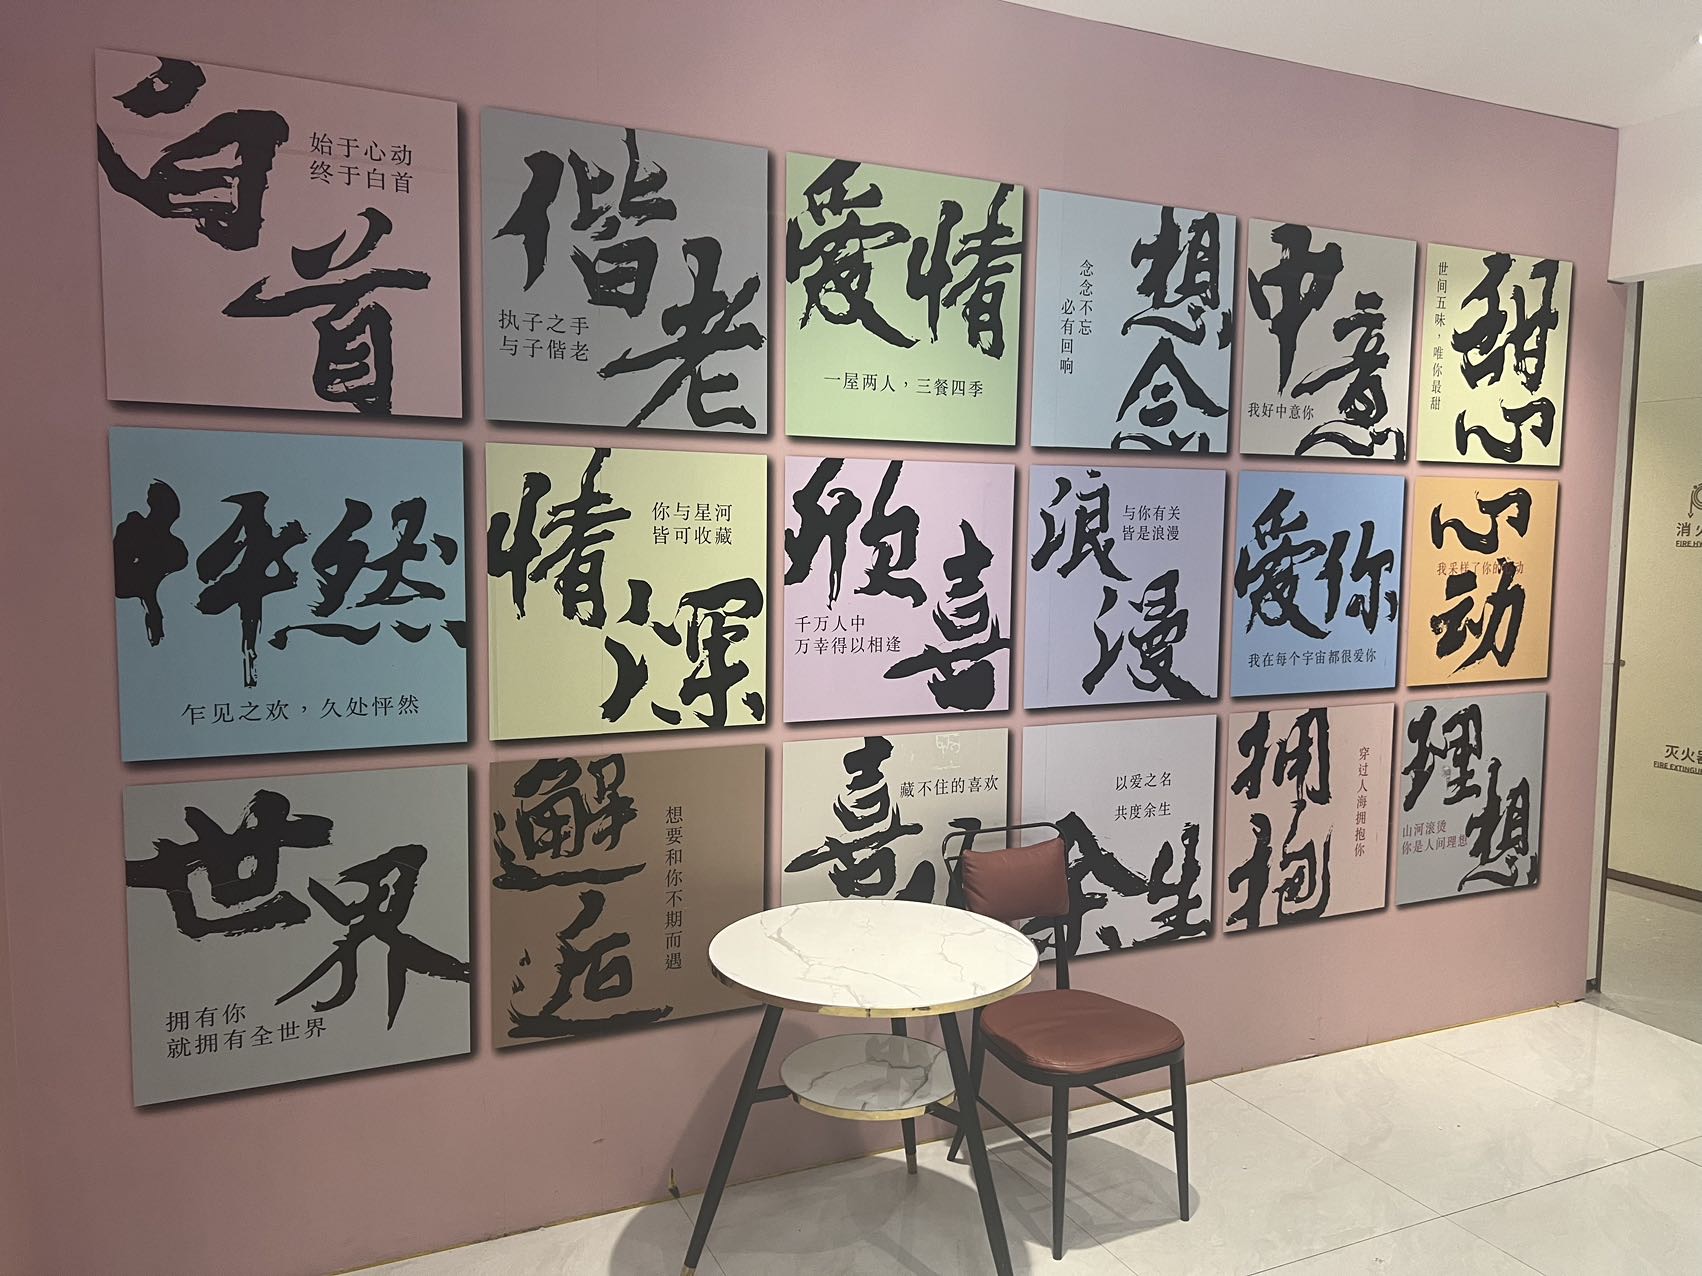 白首
始于心动
终于白首
偕老
执子之手
与子偕老
爱情
一屋两人，三餐四季
想念
念念不忘
必有回响
中意
我好中意你
甜心
世间五味，唯你最甜
怦然
乍见之欢，久处怦然
情深
你与星河
皆可收藏
欣喜
千万人中
万幸得以相逢
浪漫
与你有关
皆是浪漫
爱你
我在每个宇宙都很爱你
心动
我采样了你的心动
世界
拥有你
就拥有全世界
邂逅
想要和你不期而遇
喜
藏不住的喜欢
余生
以爱之名
共度余生
拥抱
穿过人海拥抱你
理想
山河滚烫
你是人间理想
消火
FIRE
灭火
FIRE